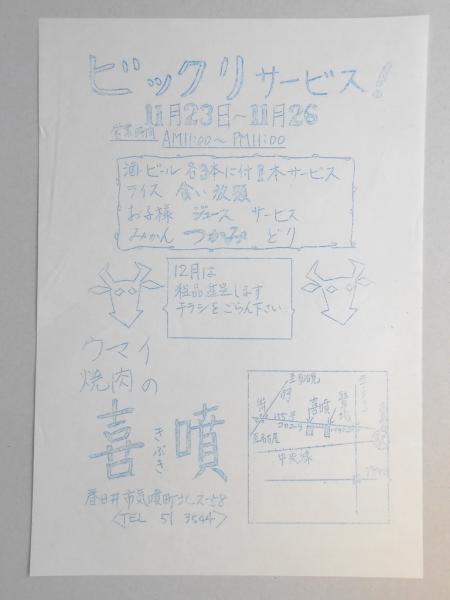 ビックリサービス!
11月23日〜11月26
営業時間 AM11:00〜PM11:00
酒・ビール各3本に付1本サービス
ライス 食い放題
お子様 ジュース サービス
みかん つかみどり
12月は
粗品進呈します
チラシをごらん下さい
ウマイ
焼肉の
喜噴
きぶき
春日井市気噴町
〈TEL 51 3544〉
喜噴
中央線